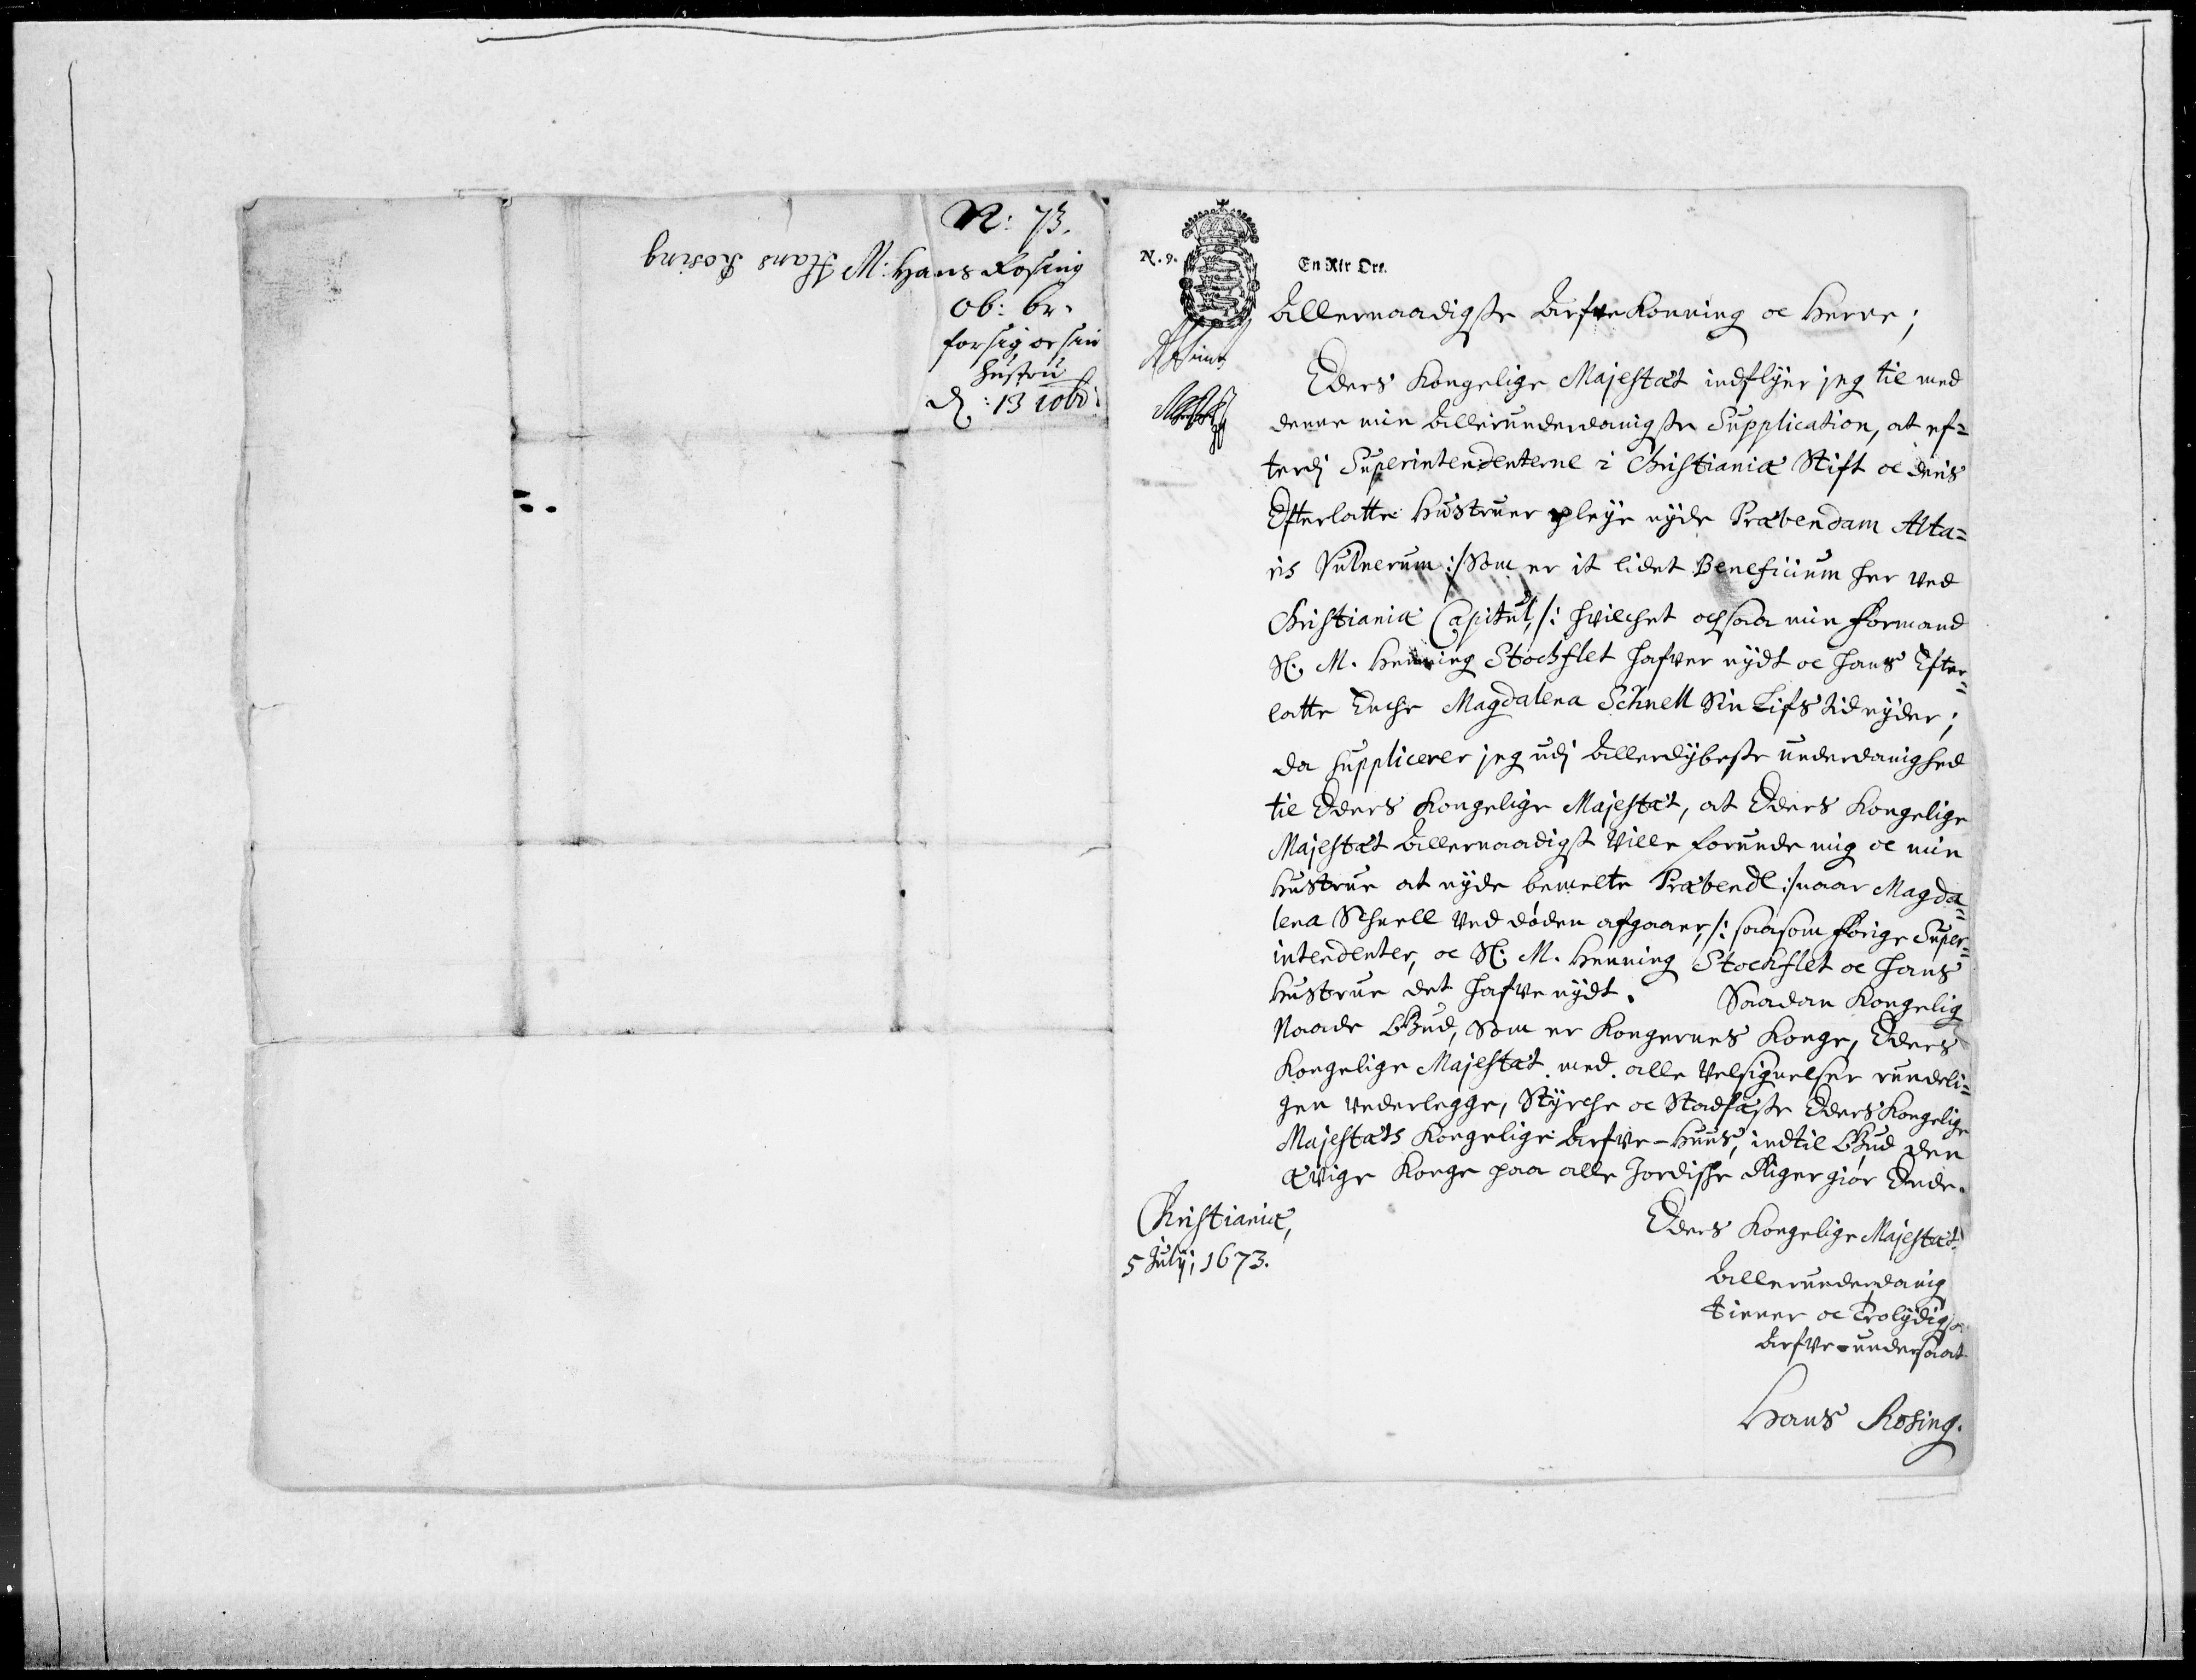 N: 73.
M: Hans Rosing
ob: br.
for sig oc sin
hustru
d: 13 10br:
Hans Rosing
N. 9.
En Rix Ort.
Allernaadigste Arfve Konning oc Herre;
Eders Kongelige Majestæt indflyer jeg til med
denne min Allerunderdanigste Supplication, at ef=
terdj Superintendenterne i Christianiæ Stift oc deris
Efterlatte Hustruer pleye nyde Præbendam Alta=
ris Vulnerum :/ Som er it lidet Beneficium her ved
Christianiæ Capitul, /: hvilchet ochsaa min Formand
Sl. M. Henning Stochflet hafver nydt oc hans Efter=
latte Enche Magdalena Schnell Sin Lifs tid nyder;
da supplicerer jeg udj Allerdybeste underdanighed
til Eders Kongelige Majestæt, at Eders Kongelige
Majestæt Allernaadigst Ville forunde mig oc min
Hustrue at nyde bemelte Præbende :/ naar Magda=
lena Schnell Ved døden afgaaer, /: saasom forige Super=
intendenter, oc Sl. M. Henning Stochflet oc hans
Hustrue det hafve nydt. Saadan Kongelig
Naade Gud, Som er Kongernes Konge, Eders
Kongelige Majestæt med alle Velsignelser rundeli=
gen vederlegge, Styrche oc Stadfæste Eders Kongelige
Majestæts Kongelige Arfve-Huus, indtil Gud den
ævige Konge paa alle Jordische Riger giør Ende.
Christianiæ,
5 Julij, 1673.
Eders Kongelige Majestæt
Allerunderdanig
tiener oc Trolydigste
Arfve-undersaat
Hans Rosing.